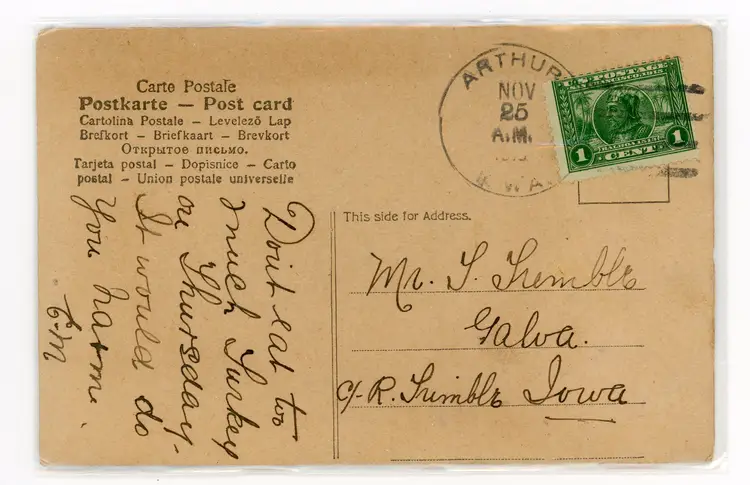 Carte Postale
Postkarte — Post card
Cartolina Postale – Levelező Lap
Brefkort – Briefkaart – Brevkort
Открытое письмо.
Tarjeta postal – Dopisnice – Carto
postal – Union postale universelle
ARTHUR
NOV
25
A.M.
U.S. POSTAGE
SAN FRANCISCO 1915
BALBOA 1513
1 CENT 1
This side for Address.
Mr. T. Trimble
Galva.
c/- R. Trimble Iowa
Don't eat too
much Turkey
on Thursday.
It would do
You harm.